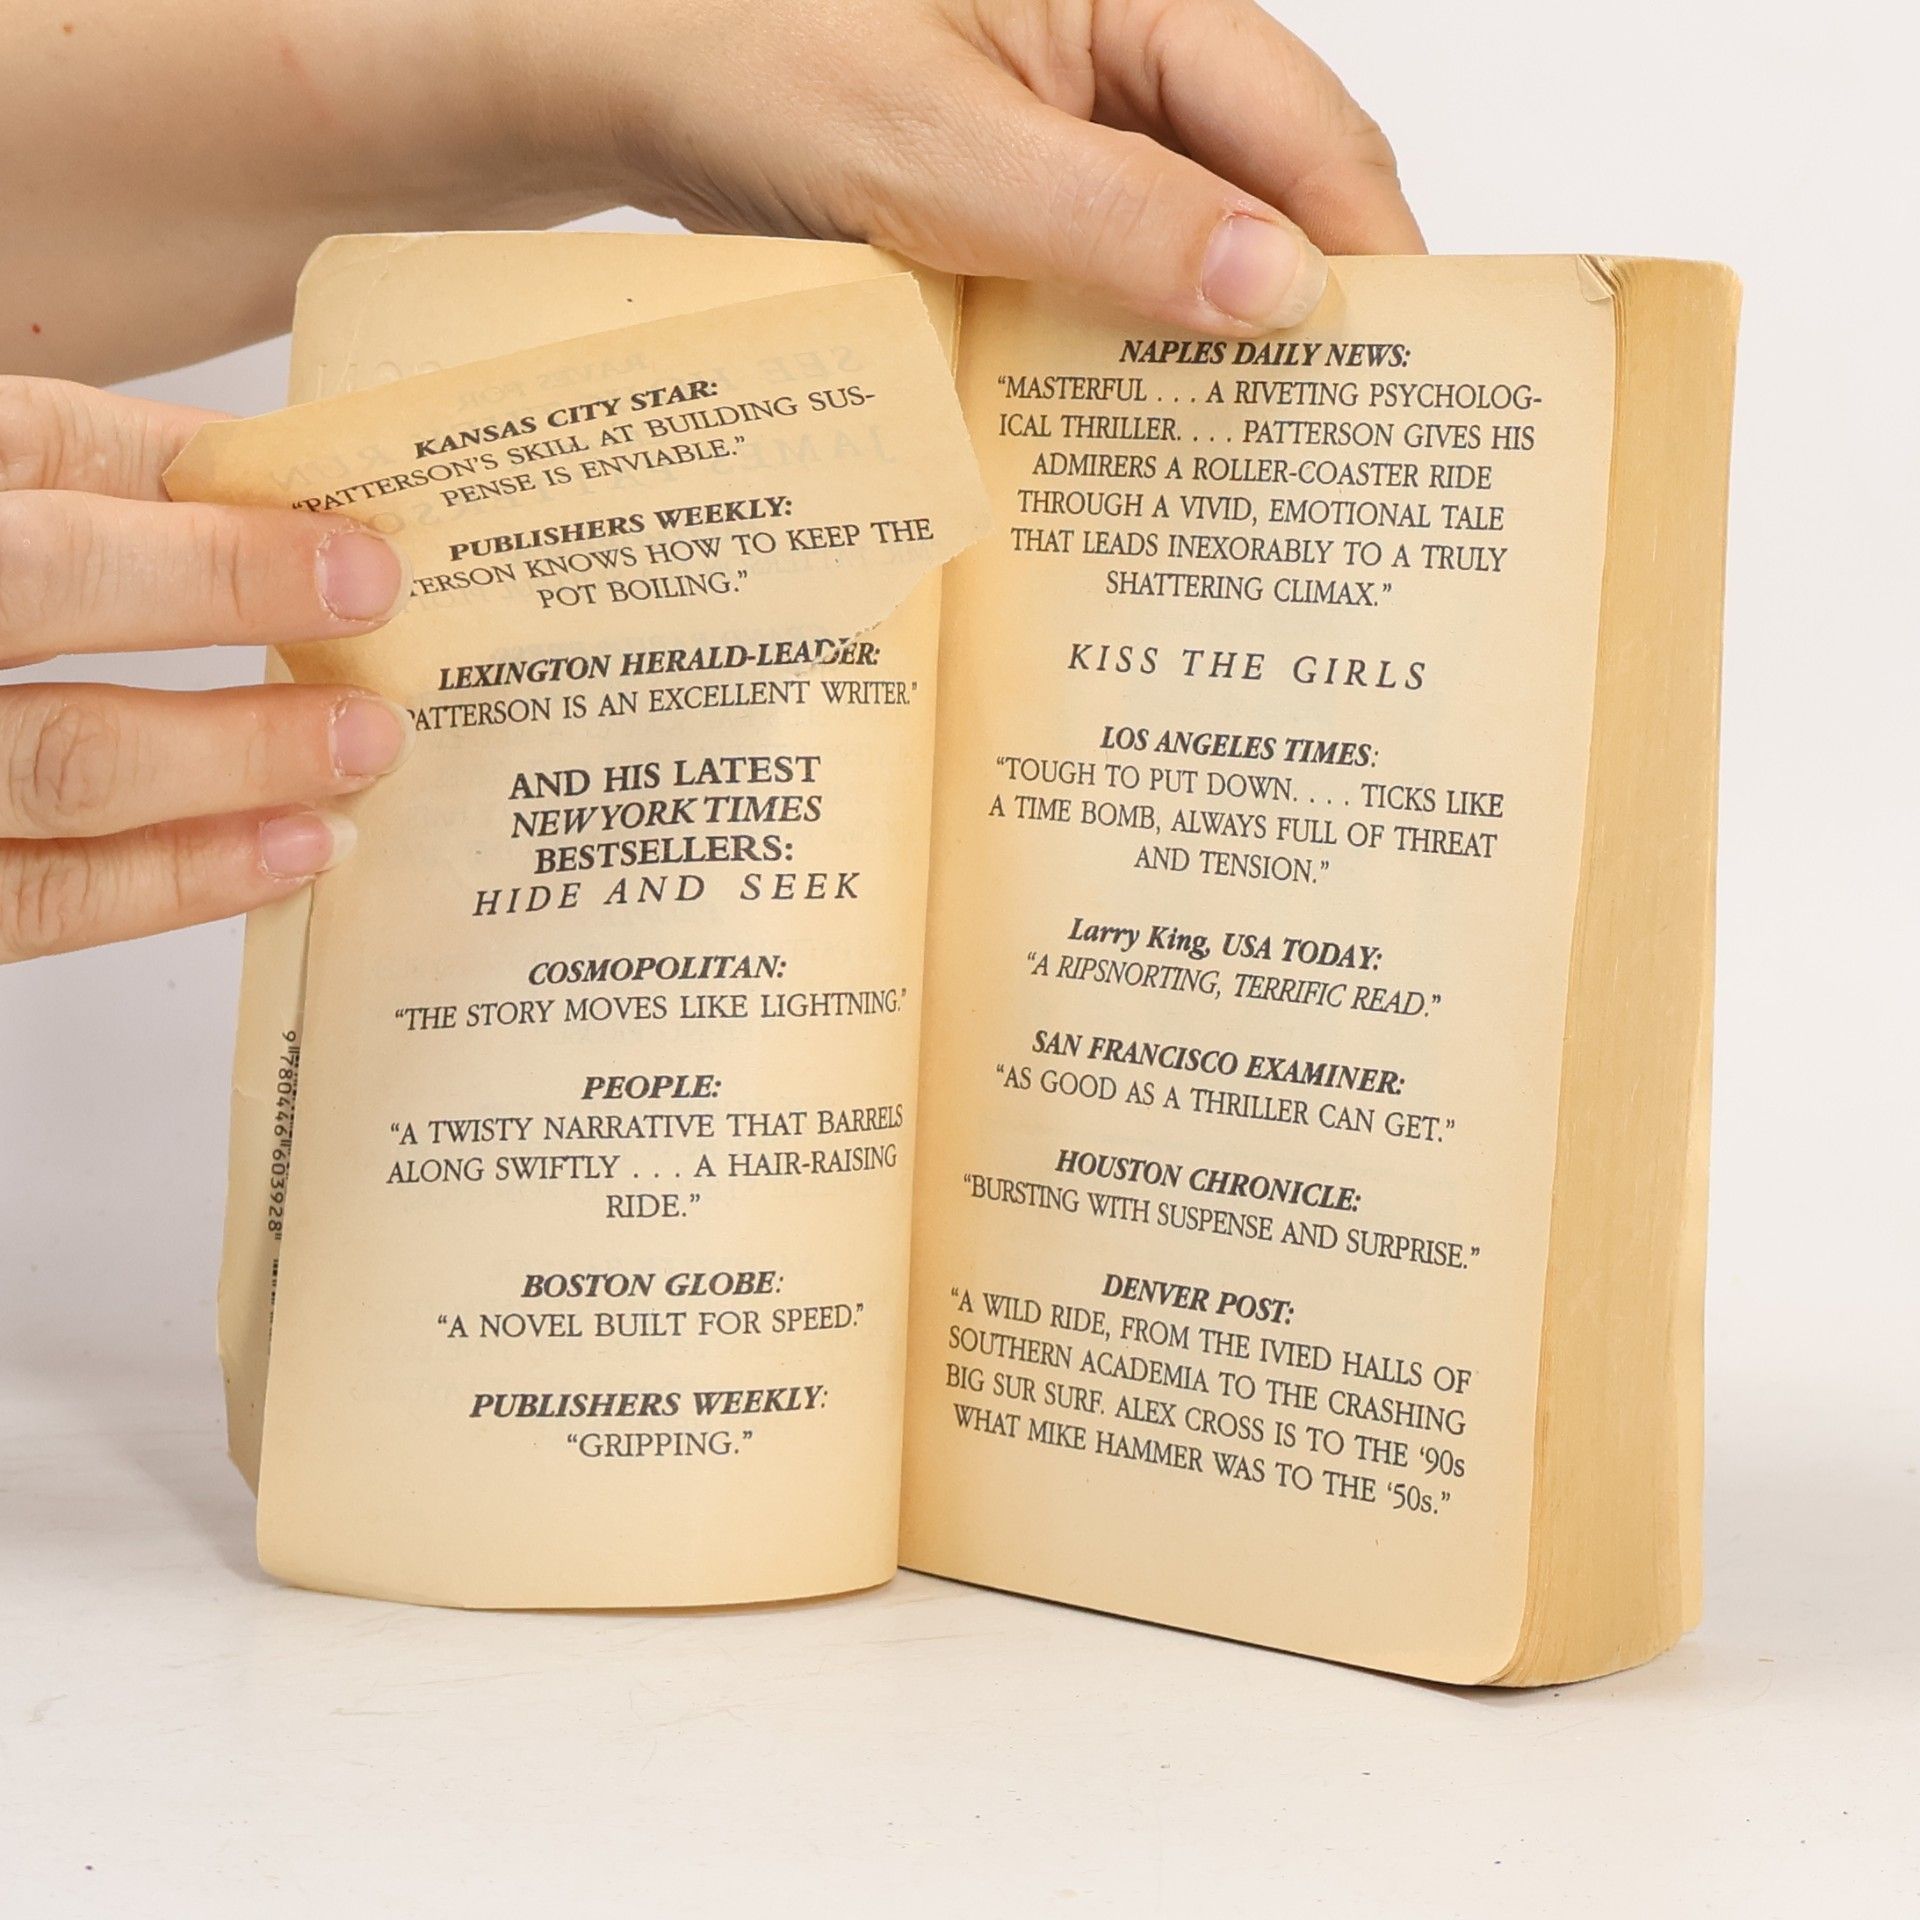 KANSAS CITY STAR:
“PATTERSON’S SKILL AT BUILDING SUS-
PENSE IS ENVIABLE.”
PUBLISHERS WEEKLY:
TERSON KNOWS HOW TO KEEP THE
POT BOILING.”
LEXINGTON HERALD-LEADER:
PATTERSON IS AN EXCELLENT WRITER.”
AND HIS LATEST
NEW YORK TIMES
BESTSELLERS:
HIDE AND SEEK
COSMOPOLITAN:
“THE STORY MOVES LIKE LIGHTNING.”
PEOPLE:
“A TWISTY NARRATIVE THAT BARRELS
ALONG SWIFTLY . . . A HAIR-RAISING
RIDE.”
BOSTON GLOBE:
“A NOVEL BUILT FOR SPEED.”
PUBLISHERS WEEKLY:
“GRIPPING.”
9 780446 603928
NAPLES DAILY NEWS:
“MASTERFUL . . . A RIVETING PSYCHOLOG-
ICAL THRILLER. . . . PATTERSON GIVES HIS
ADMIRERS A ROLLER-COASTER RIDE
THROUGH A VIVID, EMOTIONAL TALE
THAT LEADS INEXORABLY TO A TRULY
SHATTERING CLIMAX.”
KISS THE GIRLS
LOS ANGELES TIMES:
“TOUGH TO PUT DOWN. . . . TICKS LIKE
A TIME BOMB, ALWAYS FULL OF THREAT
AND TENSION.”
Larry King, USA TODAY:
“A RIPSNORTING, TERRIFIC READ.”
SAN FRANCISCO EXAMINER:
“AS GOOD AS A THRILLER CAN GET.”
HOUSTON CHRONICLE:
“BURSTING WITH SUSPENSE AND SURPRISE.”
DENVER POST:
“A WILD RIDE, FROM THE IVIED HALLS OF
SOUTHERN ACADEMIA TO THE CRASHING
BIG SUR SURF. ALEX CROSS IS TO THE ‘90s
WHAT MIKE HAMMER WAS TO THE ‘50s.”